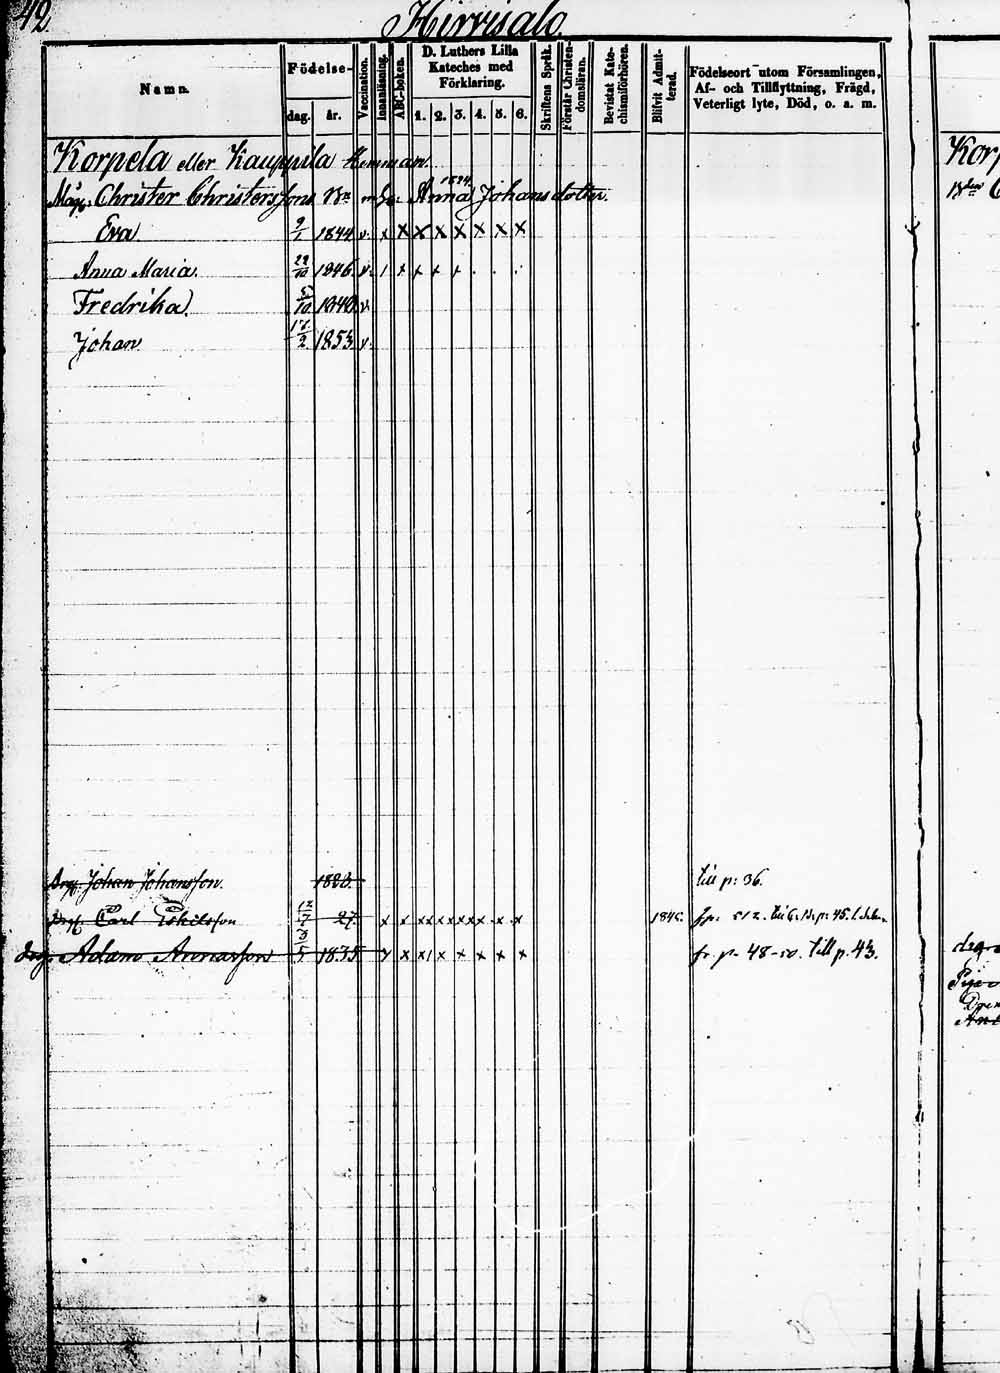 42
Hirvisalo.
Namn. Födelse- dag. år. Vaccination. Innanläsning. ABC-boken. D. Luthers Lilla Kateches med Förklaring. 1. 2. 3. 4. 5. 6. Skriftens Språk. Förstår Christendomsläran. Bevistat Katechismiförhören. Blifvit Admitterad. Födelseort utom Församlingen, Af- och Tillflyttning, Frägd, Veterligt lyte, Död, o. a. m.
Korpela eller Kauppila Hemman. Korp
1824
Christer Christersson Anna Johansdotter.
Eva 9/1 1844 v. x x x x x x x x
Anna Maria. 22/10 1846. v. / x x x x
Fredrika. 5/10 v.
Johan 17/2 1853 v.
Drg. Johan Johansson. 1823. till p: 36.
Drg. Carl Eskilsson 12/7 27. x x xx xx xx x x x 1845. fr. 512.
drg. Adam Annasson 3/5 1835 x x x x x x x x fr. p. 48-50. till p. 43.